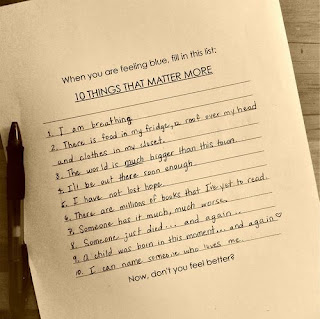 When you are feeling blue, fill in this list:
10 THINGS THAT MATTER MORE
1. I am breathing
2. There is food in my fridge, a roof over my head
and clothes in my closet.
3. The world is much bigger than this town.
4. I'll be out there soon enough.
5. I have not lost hope.
6. There are millions of books that I've yet to read.
7. Someone has it much, much worse.
8. Someone just died... and again...
9. A child was born in this moment... and again ♡
10. I can name someone who loves me.
Now, don't you feel better?